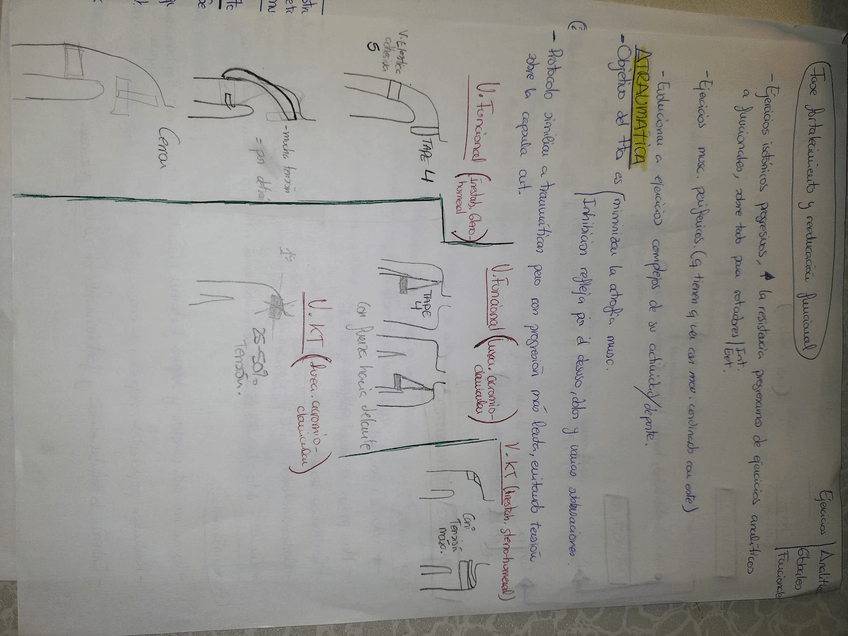 Fase fortalecimiento y reeducación funcional
Ejercicios
Analític
Globales
Funcional
- Ejercicios isotónicos progresivos, ↑ la resistencia progresamos de ejercicios analíticos
a funcionales, sobre todo para rotadores
Int.
Ext.
- Ejercicios musc. periféricos. (q tienen q ver con mov. combinado con este)
- Evolucionar a ejercicios complejos de su actividad/deporte.
ATRAUMÁTICA
- Objetivo del tto es
minimizar la atrofia musc.
Inhibición refleja por el desuso, dolor y varias
- Protocolo similar a traumáticas pero con progresión más lenta, evitando tensión
sobre la capsula ant.
V. Funcional (Inestab. Gleno-
humeral)
V. Elastica
adhesiva
5
TAPE 4
- mucha tensión
= por detrás
Cerrar
V. Funcional (Luxa. Acromio-
clavicular)
TAPE
4
Con fuerza hacia delante
V. KT (Luxa. acromio-
clavicular)
1º
25-50%
Tensión.
V. KT (Inestab. gleno-humeral)
Con
Tensión
máx.